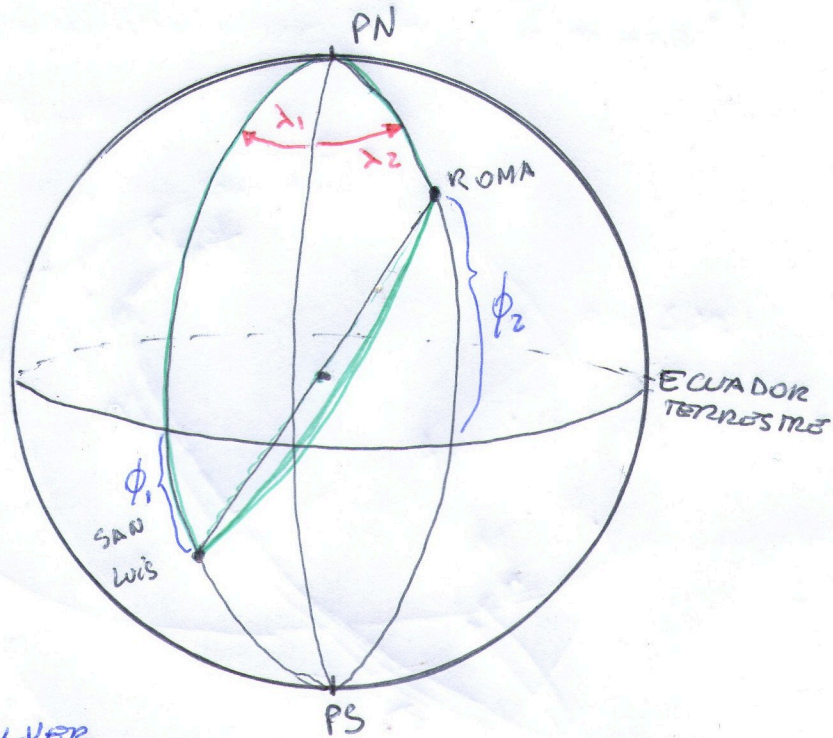 PN
λ1
λ2
ROMA
ϕ2
ECUADOR
TERRESTRE
ϕ1
SAN
LUIS
PS